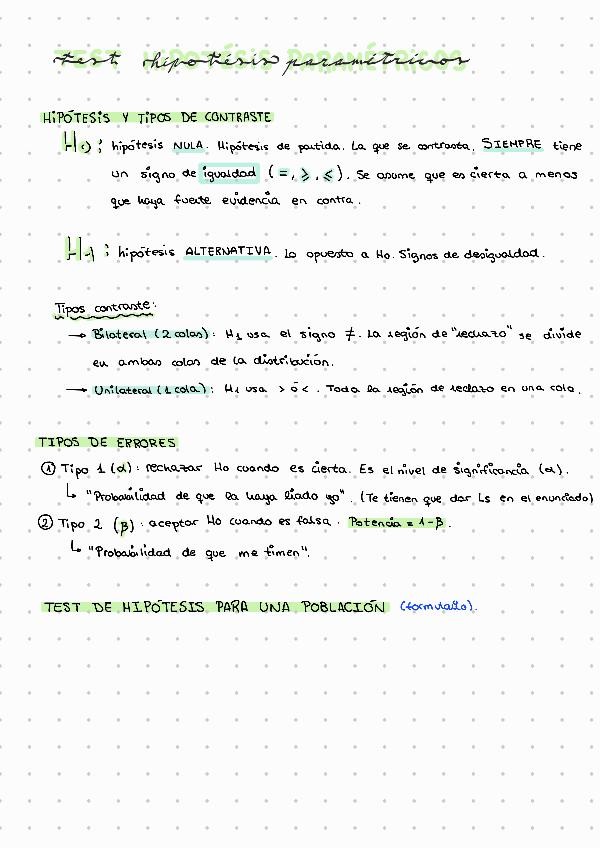 Test hipotésis paramétricos
HIPÓTESIS Y TIPOS DE CONTRASTE
H0 ; hipótesis NULA. Hipótesis de partida. La que se contrasta, SIEMPRE tiene
un signo de igualdad (=, ⩾, ⩽). Se asume que es cierta a menos
que haya fuerte evidencia en contra.
H1 ; hipótesis ALTERNATIVA. Lo opuesto a Ho. Signos de desigualdad.
Tipos contraste:
→ Bilateral (2 colas): H1 usa el signo ≠. La región de "rechazo" se divide
en ambas colas de la distribución.
→ Unilateral (1 cola): H1 usa > ó <. Toda la región de rechazo en una cola.
TIPOS DE ERRORES
① Tipo 1 (α): rechazar Ho cuando es cierta. Es el nivel de significancia (α).
↳ "Probabilidad de que la haya liado yo". (Te tienen que dar Ls en el enunciado)
② Tipo 2 (β): aceptar Ho cuando es falsa. Potencia = 1-β.
↳ "Probabilidad de que me timen".
TEST DE HIPÓTESIS PARA UNA POBLACIÓN (formulario).